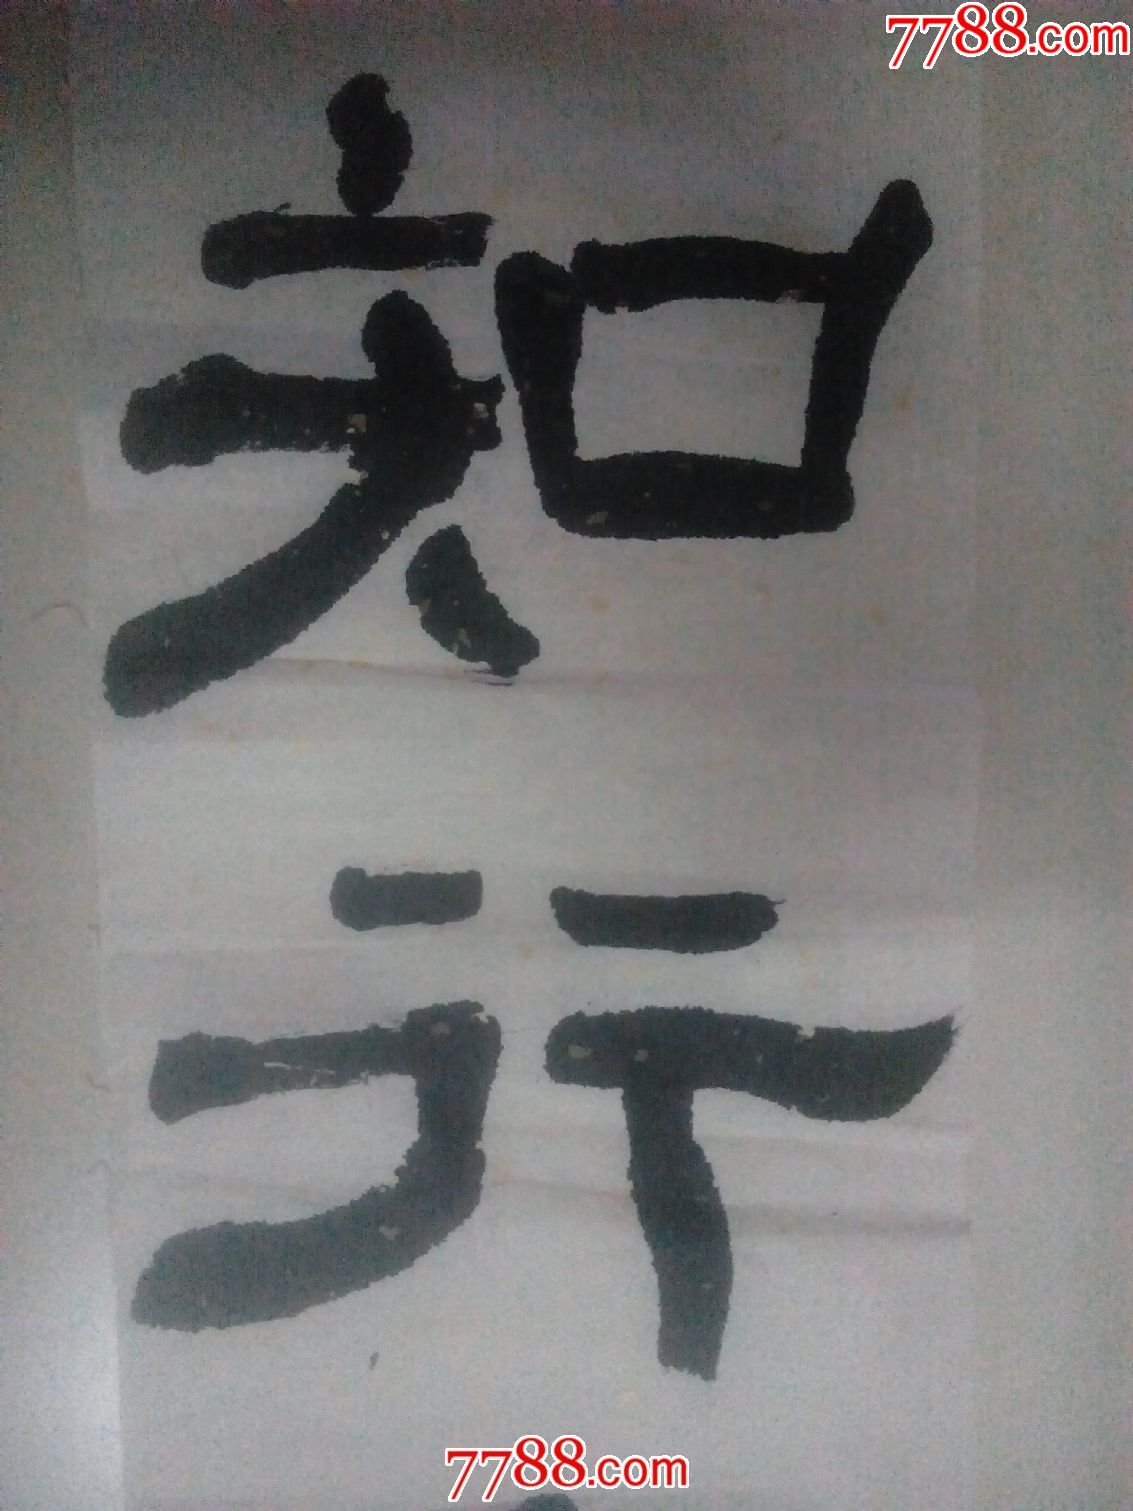 7788.com
知
行
7788.com